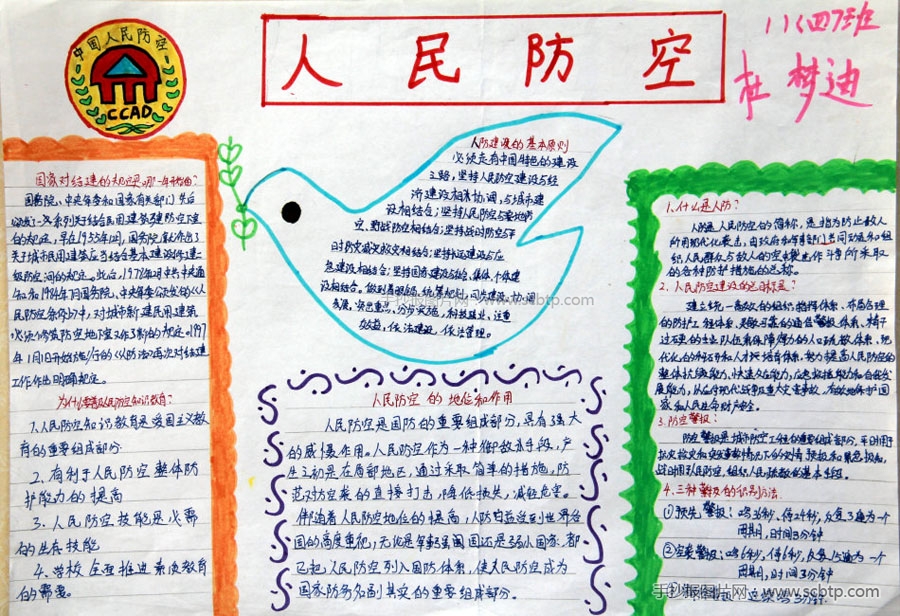 中国人民防空
CCAD
人民防空
八(四)班
杜梦迪
国家对结建的规定是哪一年开始的?
国务院、中央军委和国家有关部门先后
的规定,早在1955年间,国务院
人民防空条例》中,对城市新建民用建筑
年1月1日开始施行的《人防法》再次对结建
工作作出明确规定。
为什么要普及人民防空知识教育?
1.人民防空知识教育是爱国主义教
育的重要组成部分
2.有利于人民防空整体防
护能力的提高
3.人民防空技能是必需
的生存技能
4.学校全面推进素质教育
的需要。
人防建设的基本原则
必须走有中国特色的建设
之路,坚持人民防空建设与经
济建设相协调,与城市建
设相结合;坚持人民防空与要地防
空、野战防空相结合;坚持战时防空与平
时防灾救灾相结合;坚持长远建设与应
急建设相结合;坚持国家建设与集体、个体建
设相结合。做到着眼全局,统筹规划,同步建设,协调
发展,突出重点,分步实施,科技兴业,注重
效益,依法建设,依法管理。
手抄报图片网 www.scbtp.com
人民防空的地位和作用
人民防空是国防的重要组成部分,具有强大
的威慑作用。人民防空作为一种御敌手段,产
生之初是在局部地区,通过采取简单的措施,防
范对方空袭的直接打击,降低损失,减轻危害。
伴随着人民防空地位的提高,人防日益受到世界各
国的高度重视,无论是军事强国还是弱小国家,都
已把人民防空列入国防体系,使人民防空成为
国家防务不可或缺的重要组成部分。
1.什么是人防?
人防是人民防空的简称,是指为防止敌人
所用现代化袭击,由政府和军事部门共同动员和组
织人民群众为敌人的空中袭击作斗争所采取
的各种防护措施的总称。
2.人民防空建设的总目标是?
建立统一高效的组织指挥体系、布局合理
的防护工程体系、灵敏可靠的通信警报体系、精干
过硬的专业队伍和保障有力的人口疏散体系、现
代化的科研和人才培育体系,努力提高人民防空的
整体抗毁能力,快速反应能力,应急救援能力和自我发
展能力,从应付现代战争及重大灾害事故,有效地保护国
家和人民生命财产安全。
3.防空警报:
防空警报是城市防空工程的重要组成部分,平时用于
4.三种警报的识别方法
①预先警报:鸣36秒、停24秒,反复3遍为一个
周期,时间3分钟
②空袭警报:鸣6秒、停6秒,反复15遍为一个
周期,时间3分钟
手抄报图片网 www.scbtp.com